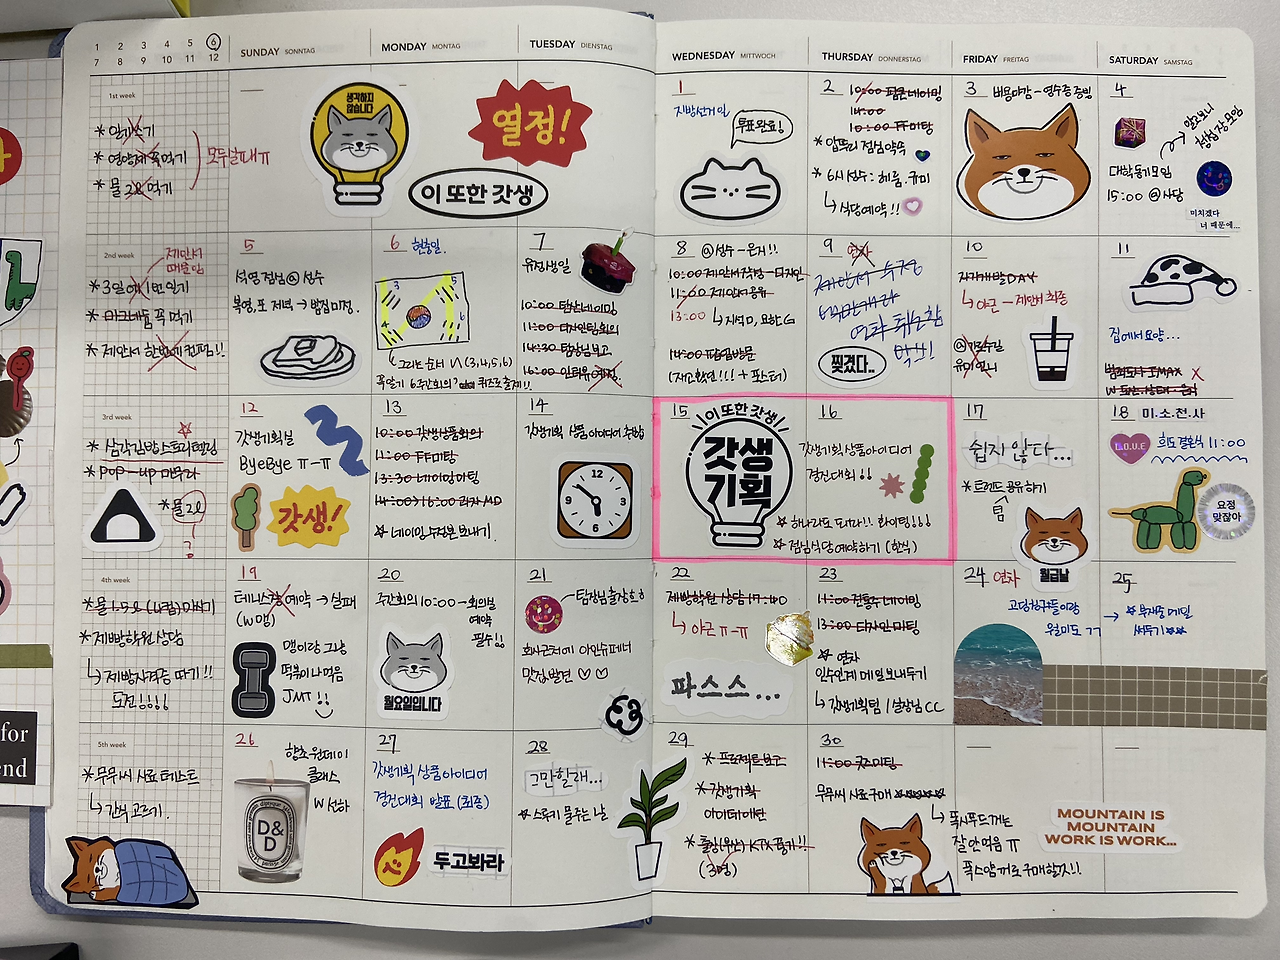 1 2 3 4 5 6
7 8 9 10 11 12
SUNDAY SONNTAG
MONDAY MONTAG
TUESDAY DIENSTAG
WEDNESDAY MITTWOCH
THURSDAY DONNERSTAG
FRIDAY FREITAG
SATURDAY SAMSTAG
1st week
* 일기쓰기
* 영양제 꼭 먹기
* 물 2L 먹기
모두실패ㅠ
생각하지
않습니다
열정!
이 또한 갓생
1
지방선거일
투표완료!
2
10:00 팝콘네이밍
14:00
10:00 FF미팅
* 압뚜리 점심약속
* 6시 성수: 헤륨, 규미
↳ 식당예약!!
3
비용마감 - 영수증 증빙
4
알고보니
청첩장모임
대학동기모임
15:00 @사당
미치겠다
너 때문에...
2nd week
제안서
때문임
* 3일에 1번 일기
* 꼭 먹기
* 제안서 한번에 컨펌!!
5
석영 점심 @ 성수
복영, 포 저녁 → 밤집미정.
6
현충일.
3
5
4
6
↳ 그리는 순서 (3,4,5,6)
꼭알기 6주간회의 퀴즈로출제!!
7
유정생일
10:00 팝콘네이밍
11:00 디자인팀회의
14:30 팀장님보고
16:00 인터뷰예정.
8
@성수-온거!!
10:00 제안서작성-디자인
11:00 제안서공유
13:00
↳ 지석M, 요한G
14:00 팝업방문
(재고확인!!! + 포스터)
9
연차
제안서 수정
연차 취소함
박살!
찢겼다..
10
자기개발DAY
↳ 야근 - 제안서 최종
유미언니
11
집에서요양...
범죄도시 IMAX
3rd week
* 삼각김밥 스토리텔링
* POP-UP 마무리
* 물2L
?
12
갓생기획실
ByeBye ㅠ-ㅠ
갓생!
13
10:00 갓생상품회의
11:00 FF미팅
13:30 네이밍미팅
14:00→16:00 과자 MD
☆ 네이밍 수정본 보내기.
14
갓생기획 상품 아이디어 취합
12
3
6
9
15
이 또한 갓생!
갓생
기획
16
갓생기획 상품아이디어
경진대회!!
☆ 하나라도 되라!! 화이팅!!!
☆ 점심식당 예약하기 (한식)
17
쉽지 않다...
* 트렌드 공유하기
팀
월급날
18 미.소.천.사
L.O.V.E
희도결혼식 11:00
요정
맞잖아
4th week
* 물 1.5L (4컵) 마시기
* 제빵학원상담
↳ 제빵자격증 따기!!
도전!!!!
19
테니스장 예약 → 실패
(w맹)
맹이랑 그냥
떡볶이나먹음
JMT!!
20
주간회의 10:00 - 회의실
예약
필수!!
월요일입니다
21
팀장님출장 ㅎㅎ
회사근처에 아인슈페너
맛집발견 ♡♡
22
제빵학원 상담 17:40
↳ 야근 ㅠ-ㅠ
파스스...
23
11:00 전통주네이밍
13:00 디자인미팅
☆ 연차
인수인계 메일보내두기
↳ 갓생기획팀/실장님 CC
24
연차
고딩친구들이랑
월미도 ㄱㄱ
25
→ ☆ 부재중메일
써두기☆☆
5th week
* 무무씨 사료 테스트
↳ 간식 고르기.
26
향초원데이
클래스
W 선하
D&
D
27
갓생기획 상품아이디어
경진대회 발표 (최종)
두고봐라
28
그만할래...
☆ 스투키 물주는 날
29
* 프로젝트보고
* 갓생기획
아이데이션
* 출장(부산) KTX 끊기!!
(3명)
30
11:00 굿즈미팅
무무씨 사료구매
↳ 폭시푸드께는
잘안먹음 ㅠ
폭스앞께로구매할것!!
MOUNTAIN IS
MOUNTAIN
WORK IS WORK...
for
end